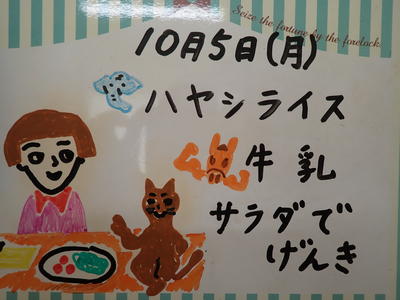 Seize the fortune by the forelock.
10月5日(月)
ハヤシライス
牛乳
サラダで
げんき